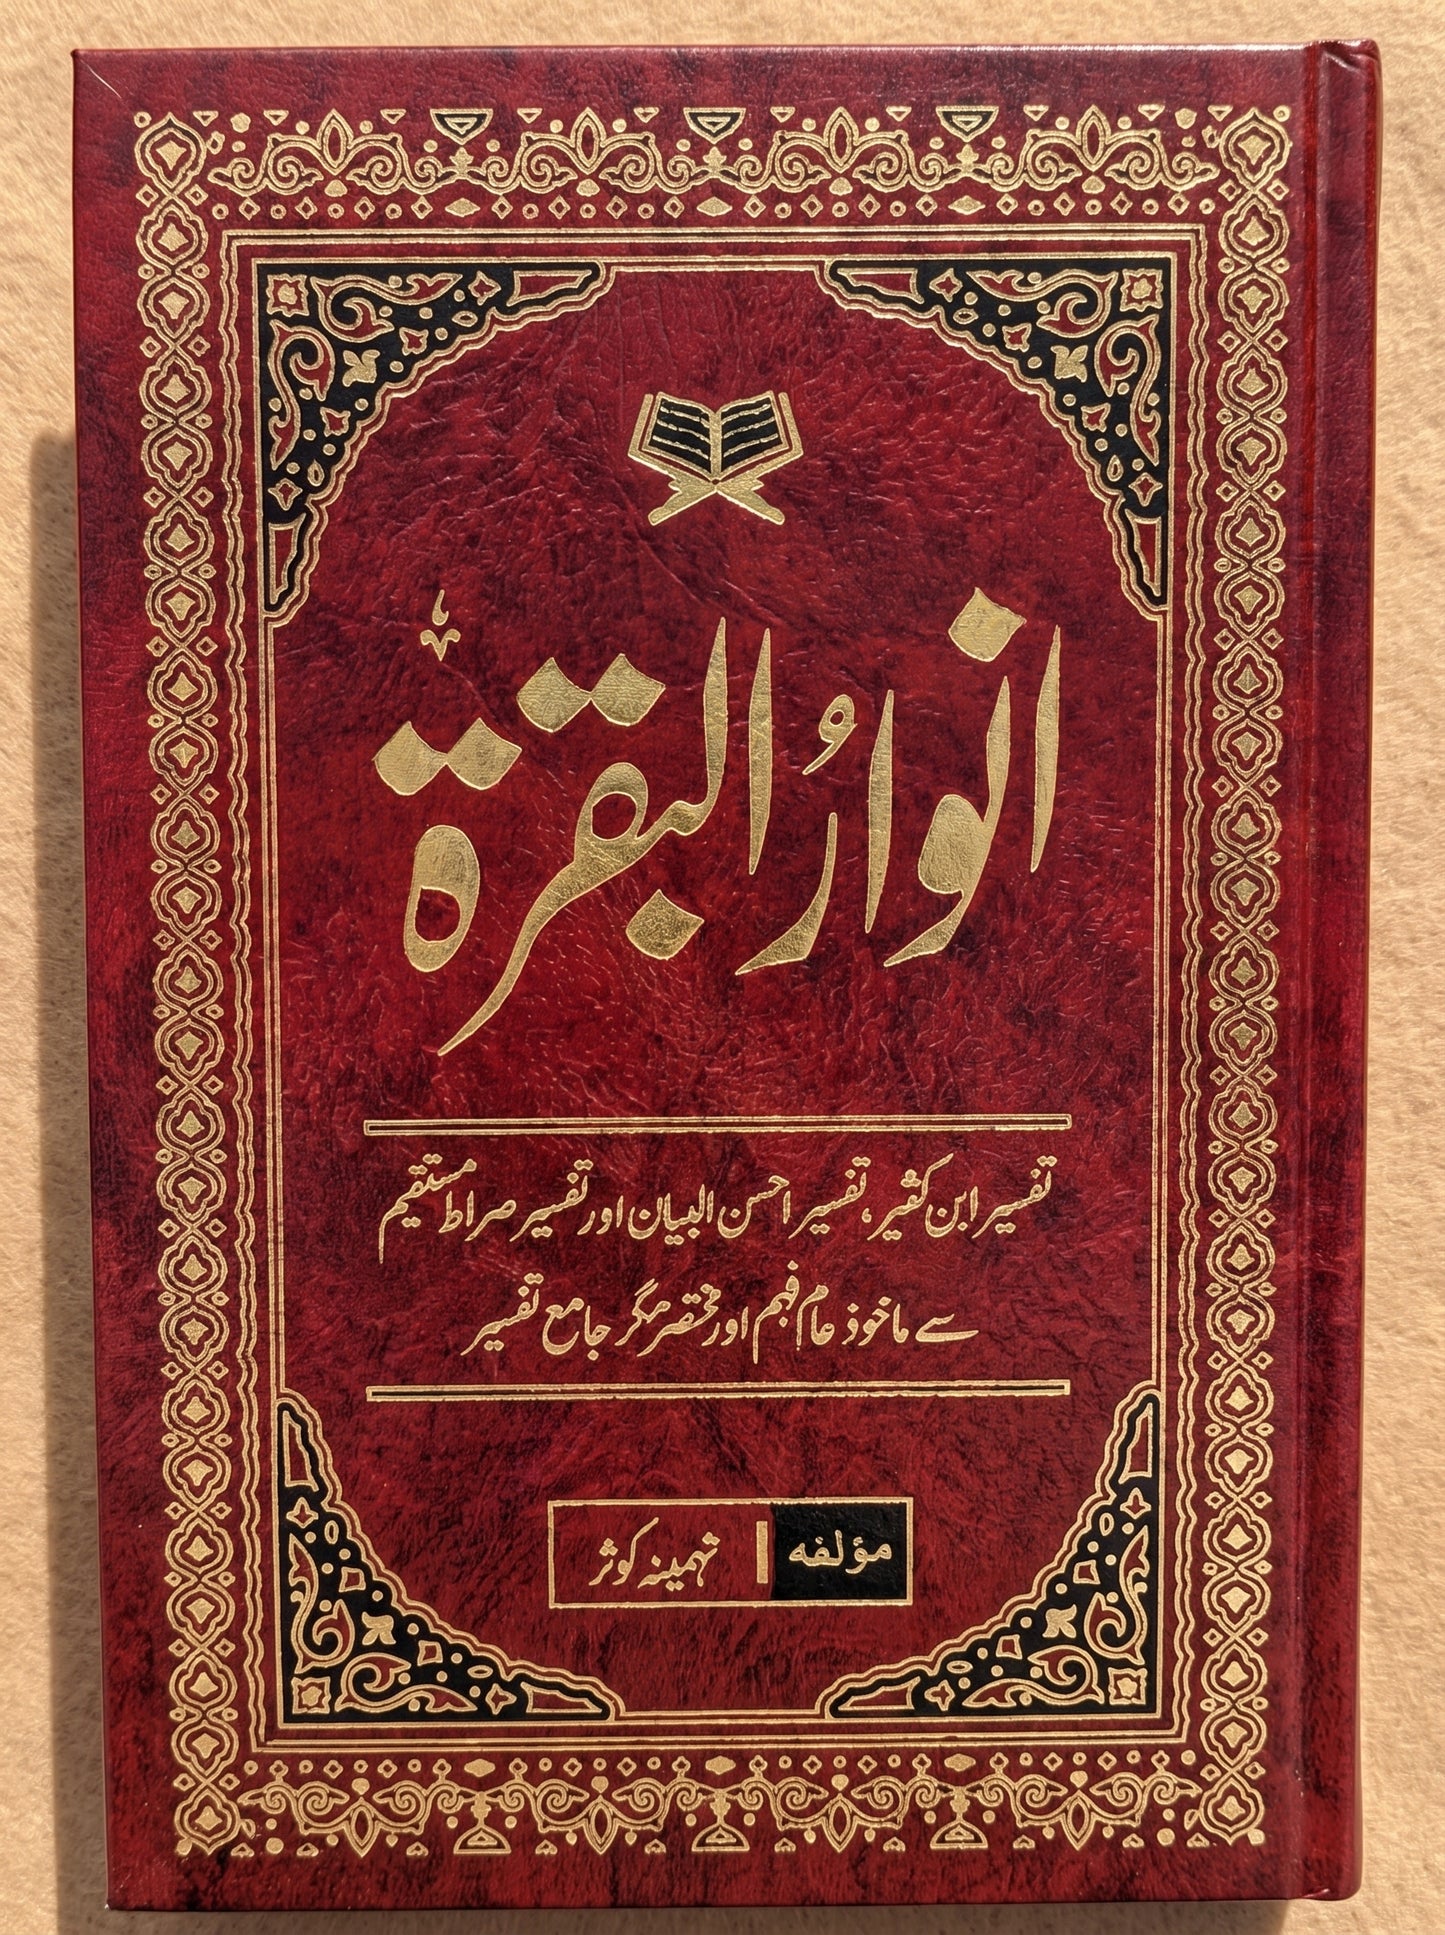 انوارُ البقرۃ
تفسیر ابن کثیر، تفسیر احسن البیان اور تفسیر صراط مستقیم
سے ماخوذ عام فہم اور مختصر مگر جامع تفسیر
مؤلفه | تہمینہ کوثر